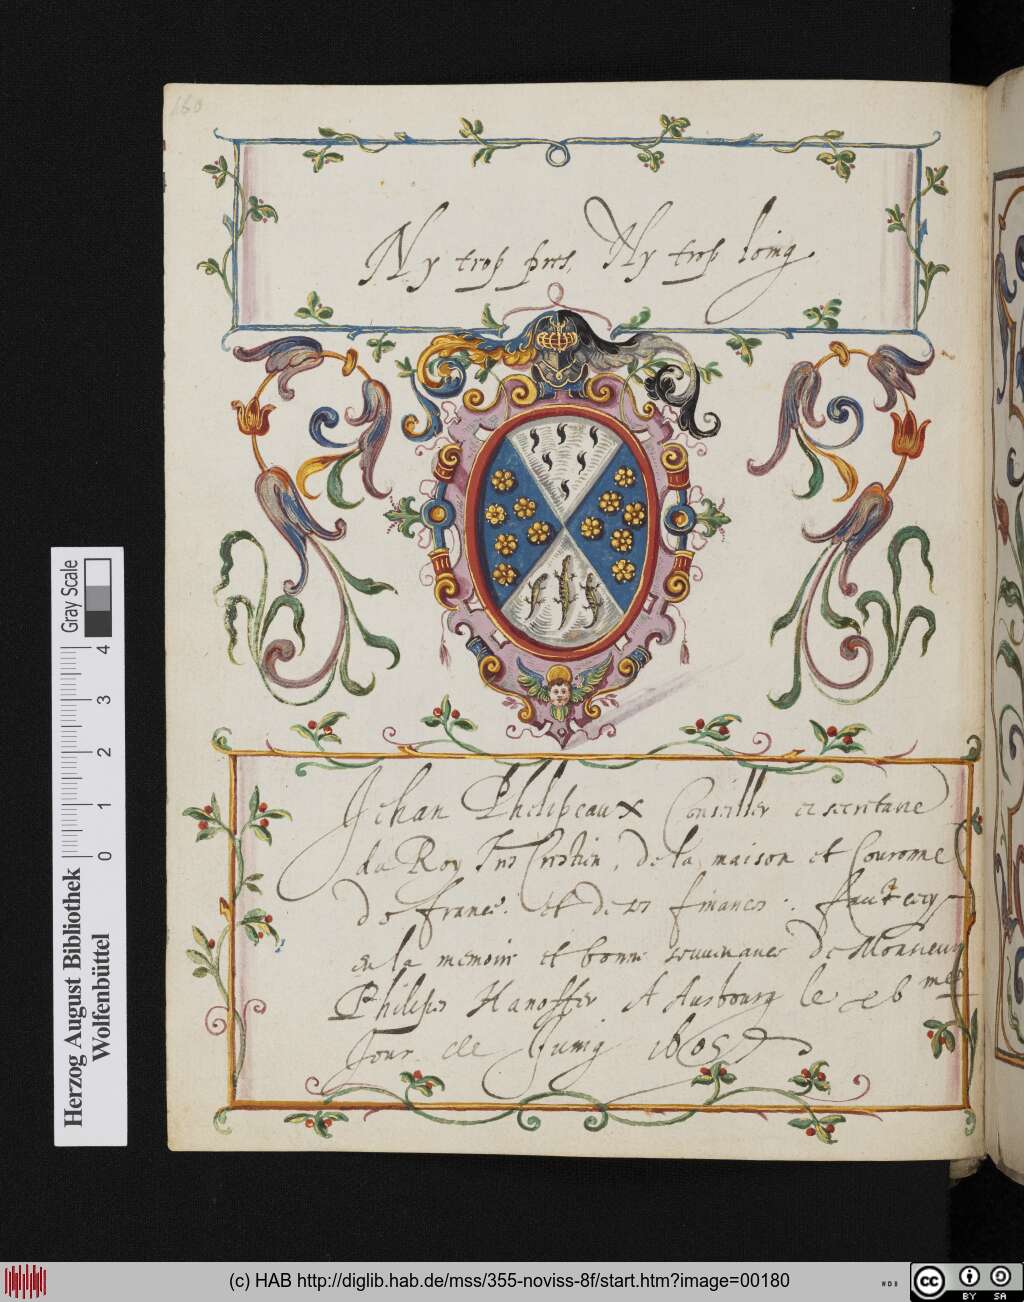 160
Ny trop pres, Ny trop loing
Jehan Phelipeaux Conseiller et secretaire
du Roy Tres Crestien, de la maison et Couronne
de france. Et de ses finances. faict cecy
en la memoire et bonne souvenance de Monsieur
Philipes Hanoffer A Ausbourg le me
Jour de Juing 1605
Gray Scale
0 1 2 3 4
Herzog August Bibliothek
Wolfenbüttel
(c) HAB http://diglib.hab.de/mss/355-noviss-8f/start.htm?image=00180
WDB
cc BY SA